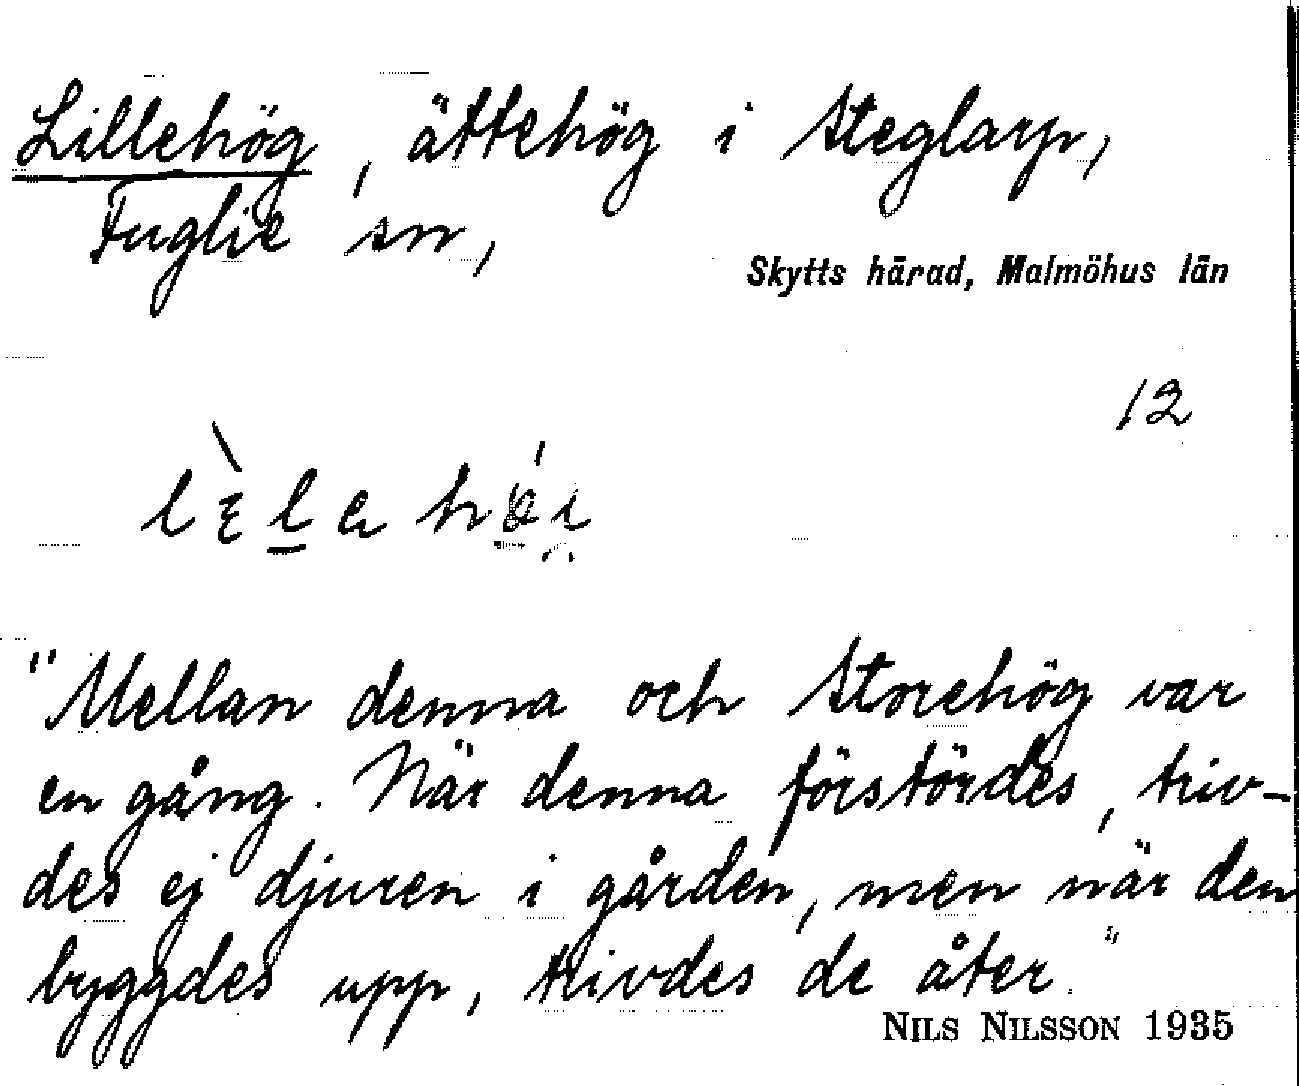 Lillehög, ättehög i Steglarp,
Fuglie sn,
Skytts härad, Malmöhus län
12
"Mellan denna och Storehög var
en gång. När denna förstördes, triv-
des ej djuren i gården, men när den
byggdes upp, trivdes de åter."
NILS NILSSON 1935